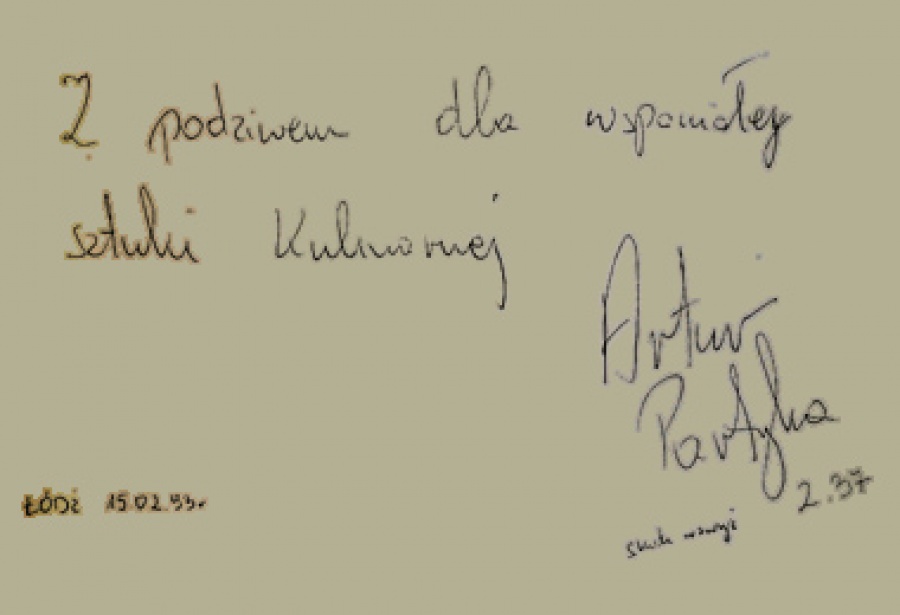 Z podziwem dla wspaniałej
sztuki Kulinarnej
Artur
Partyka
2.37
skok wzwyż
ŁÓDŹ 15.02.93r